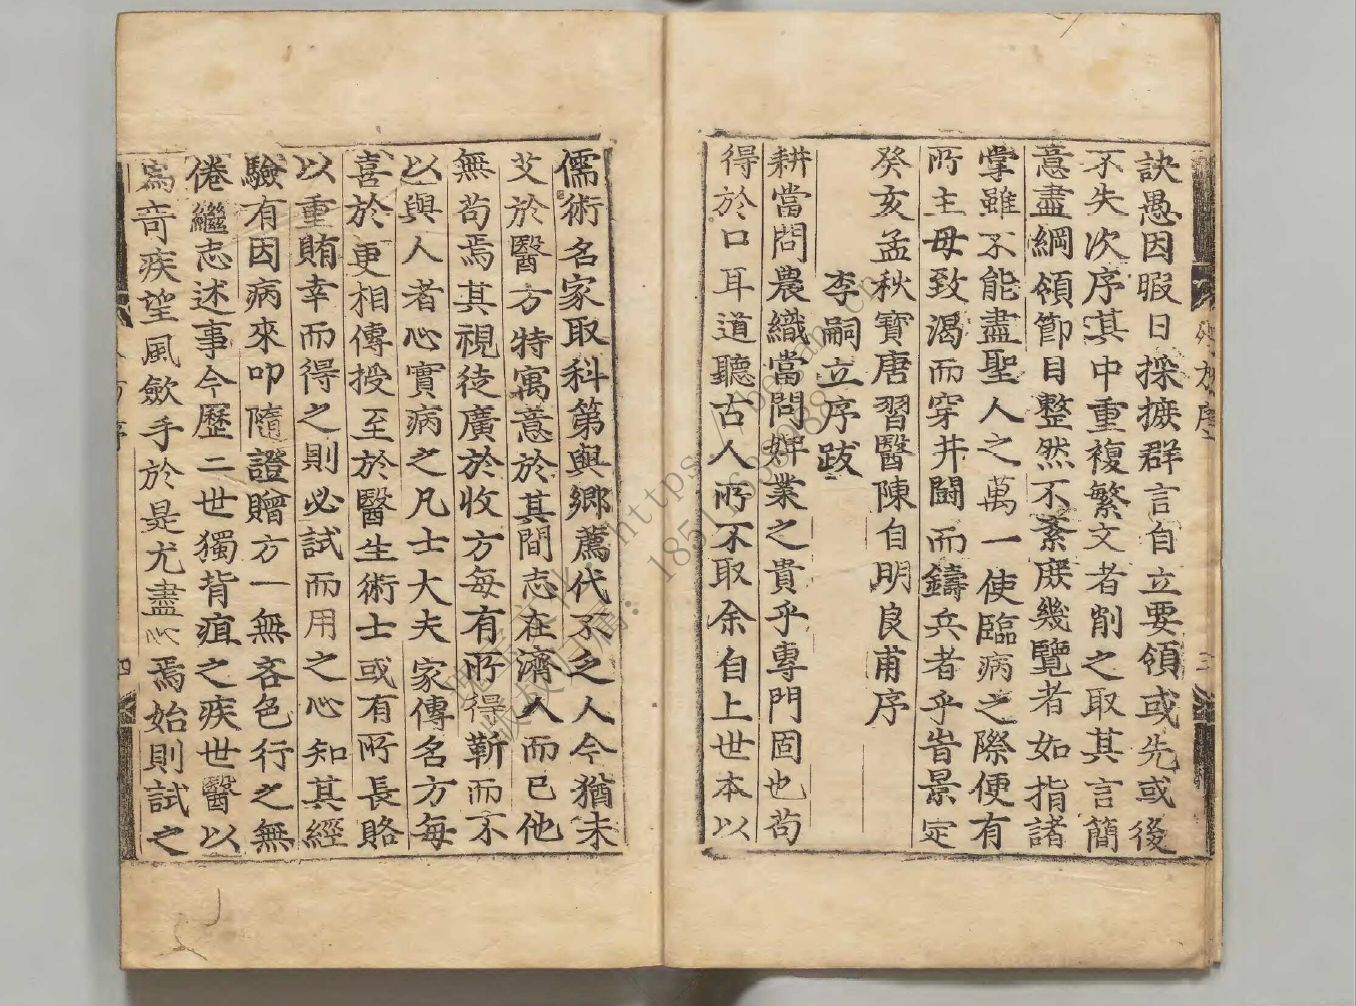 訣愚因暇日採摭群言自立要領或先或後
不失次序其中重複繁文者削之取其言簡
意盡綱領節目整然不紊庶幾覽者如指諸
掌雖不能盡聖人之萬一使臨病之際便有
所主毋致渴而穿井鬪而鑄兵者乎旹景定
癸亥孟秋寶唐習醫陳自明良甫序
李嗣立序跋
耕當問農織當問婢業之貴乎專門固也苟
得於口耳道聽古人所不取余自上世本以
儒術名家取科第與鄉薦代不乏人今猶未
艾於醫方特寓意於其間志在濟人而已他
無苟焉其視徒廣於收方每有所得靳而不
以與人者心實病之凡士大夫家傳名方每
喜於更相傳授至於醫生術士或有所長賂
以重賄幸而得之則必試而用之心知其經
驗有因病來叩隨證贈方一無吝色行之無
倦繼志述事今歷二世獨背疽之疾世醫以
為奇疾望風歛手於是尤盡心焉始則試之
三
四